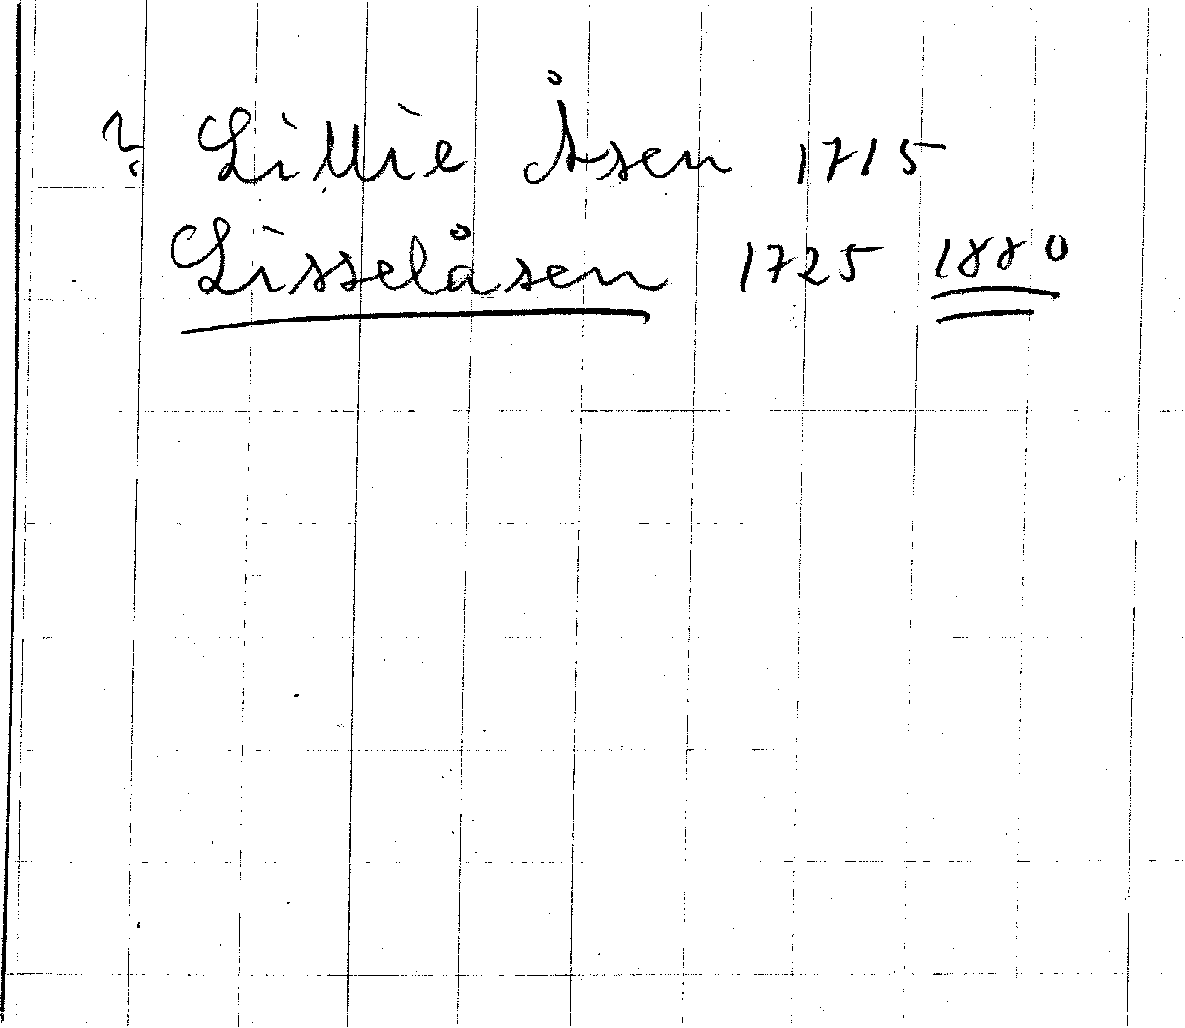 ? Lillie Åsen 1715
Lisselåsen 1725 1880